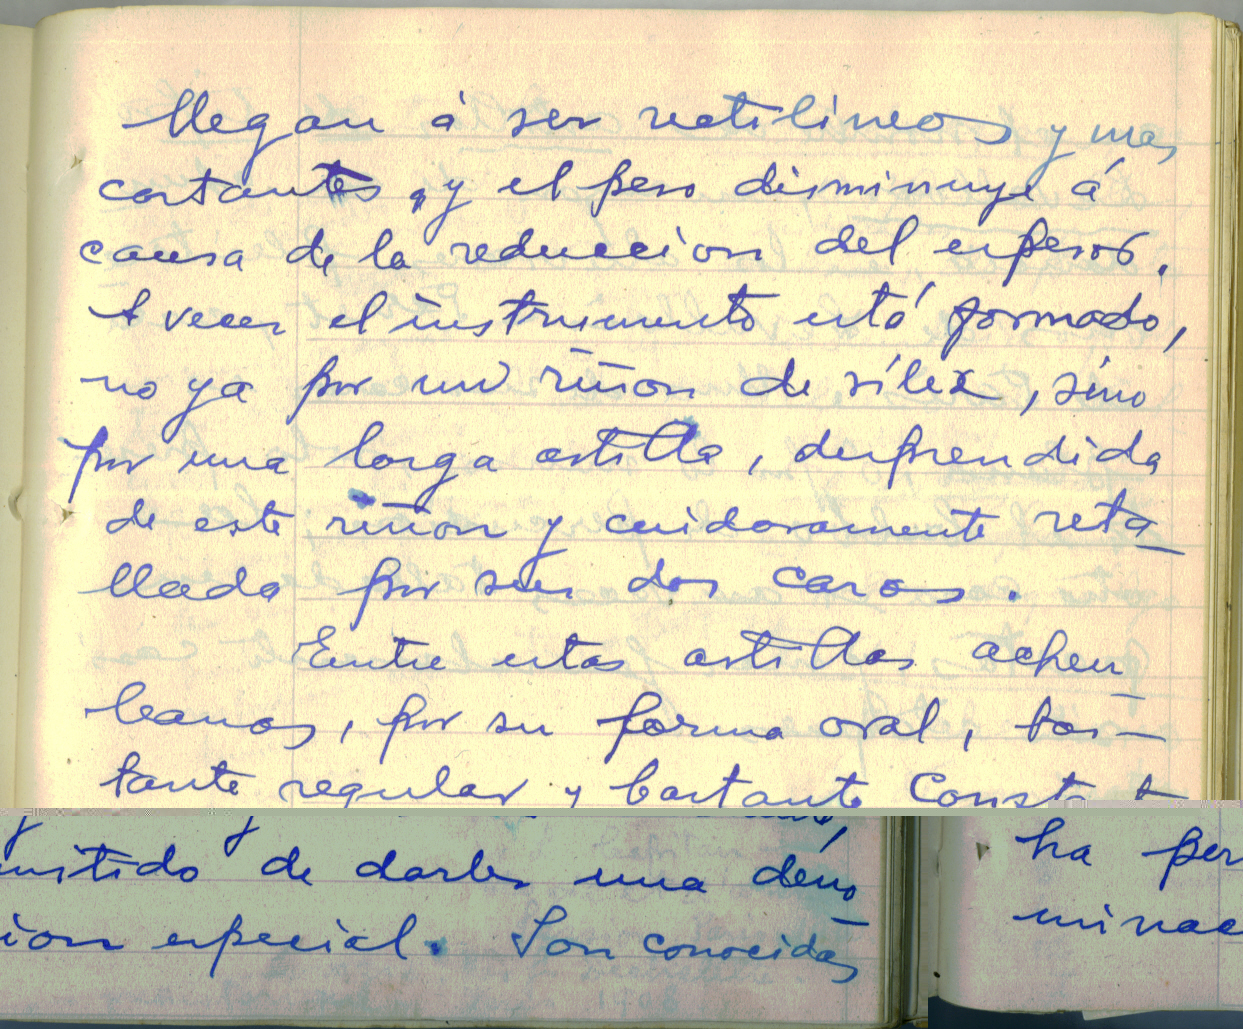 llegan á ser rectilineos y mas
cortantes, y el peso disminuye á
causa de la reduccion del espesor.
A veces el instrumento está formado,
no ya por un riñon de sílex, sino
por una larga astilla, desprendida
de este riñon y cuidosamente reta-
llada por sus dos caras.
Entre estas astillas acheu-
leanas, por su forma oval, bas-
tante regular y bastante const
ha permitido de darles una deno-
minacion especial. Son conocidas